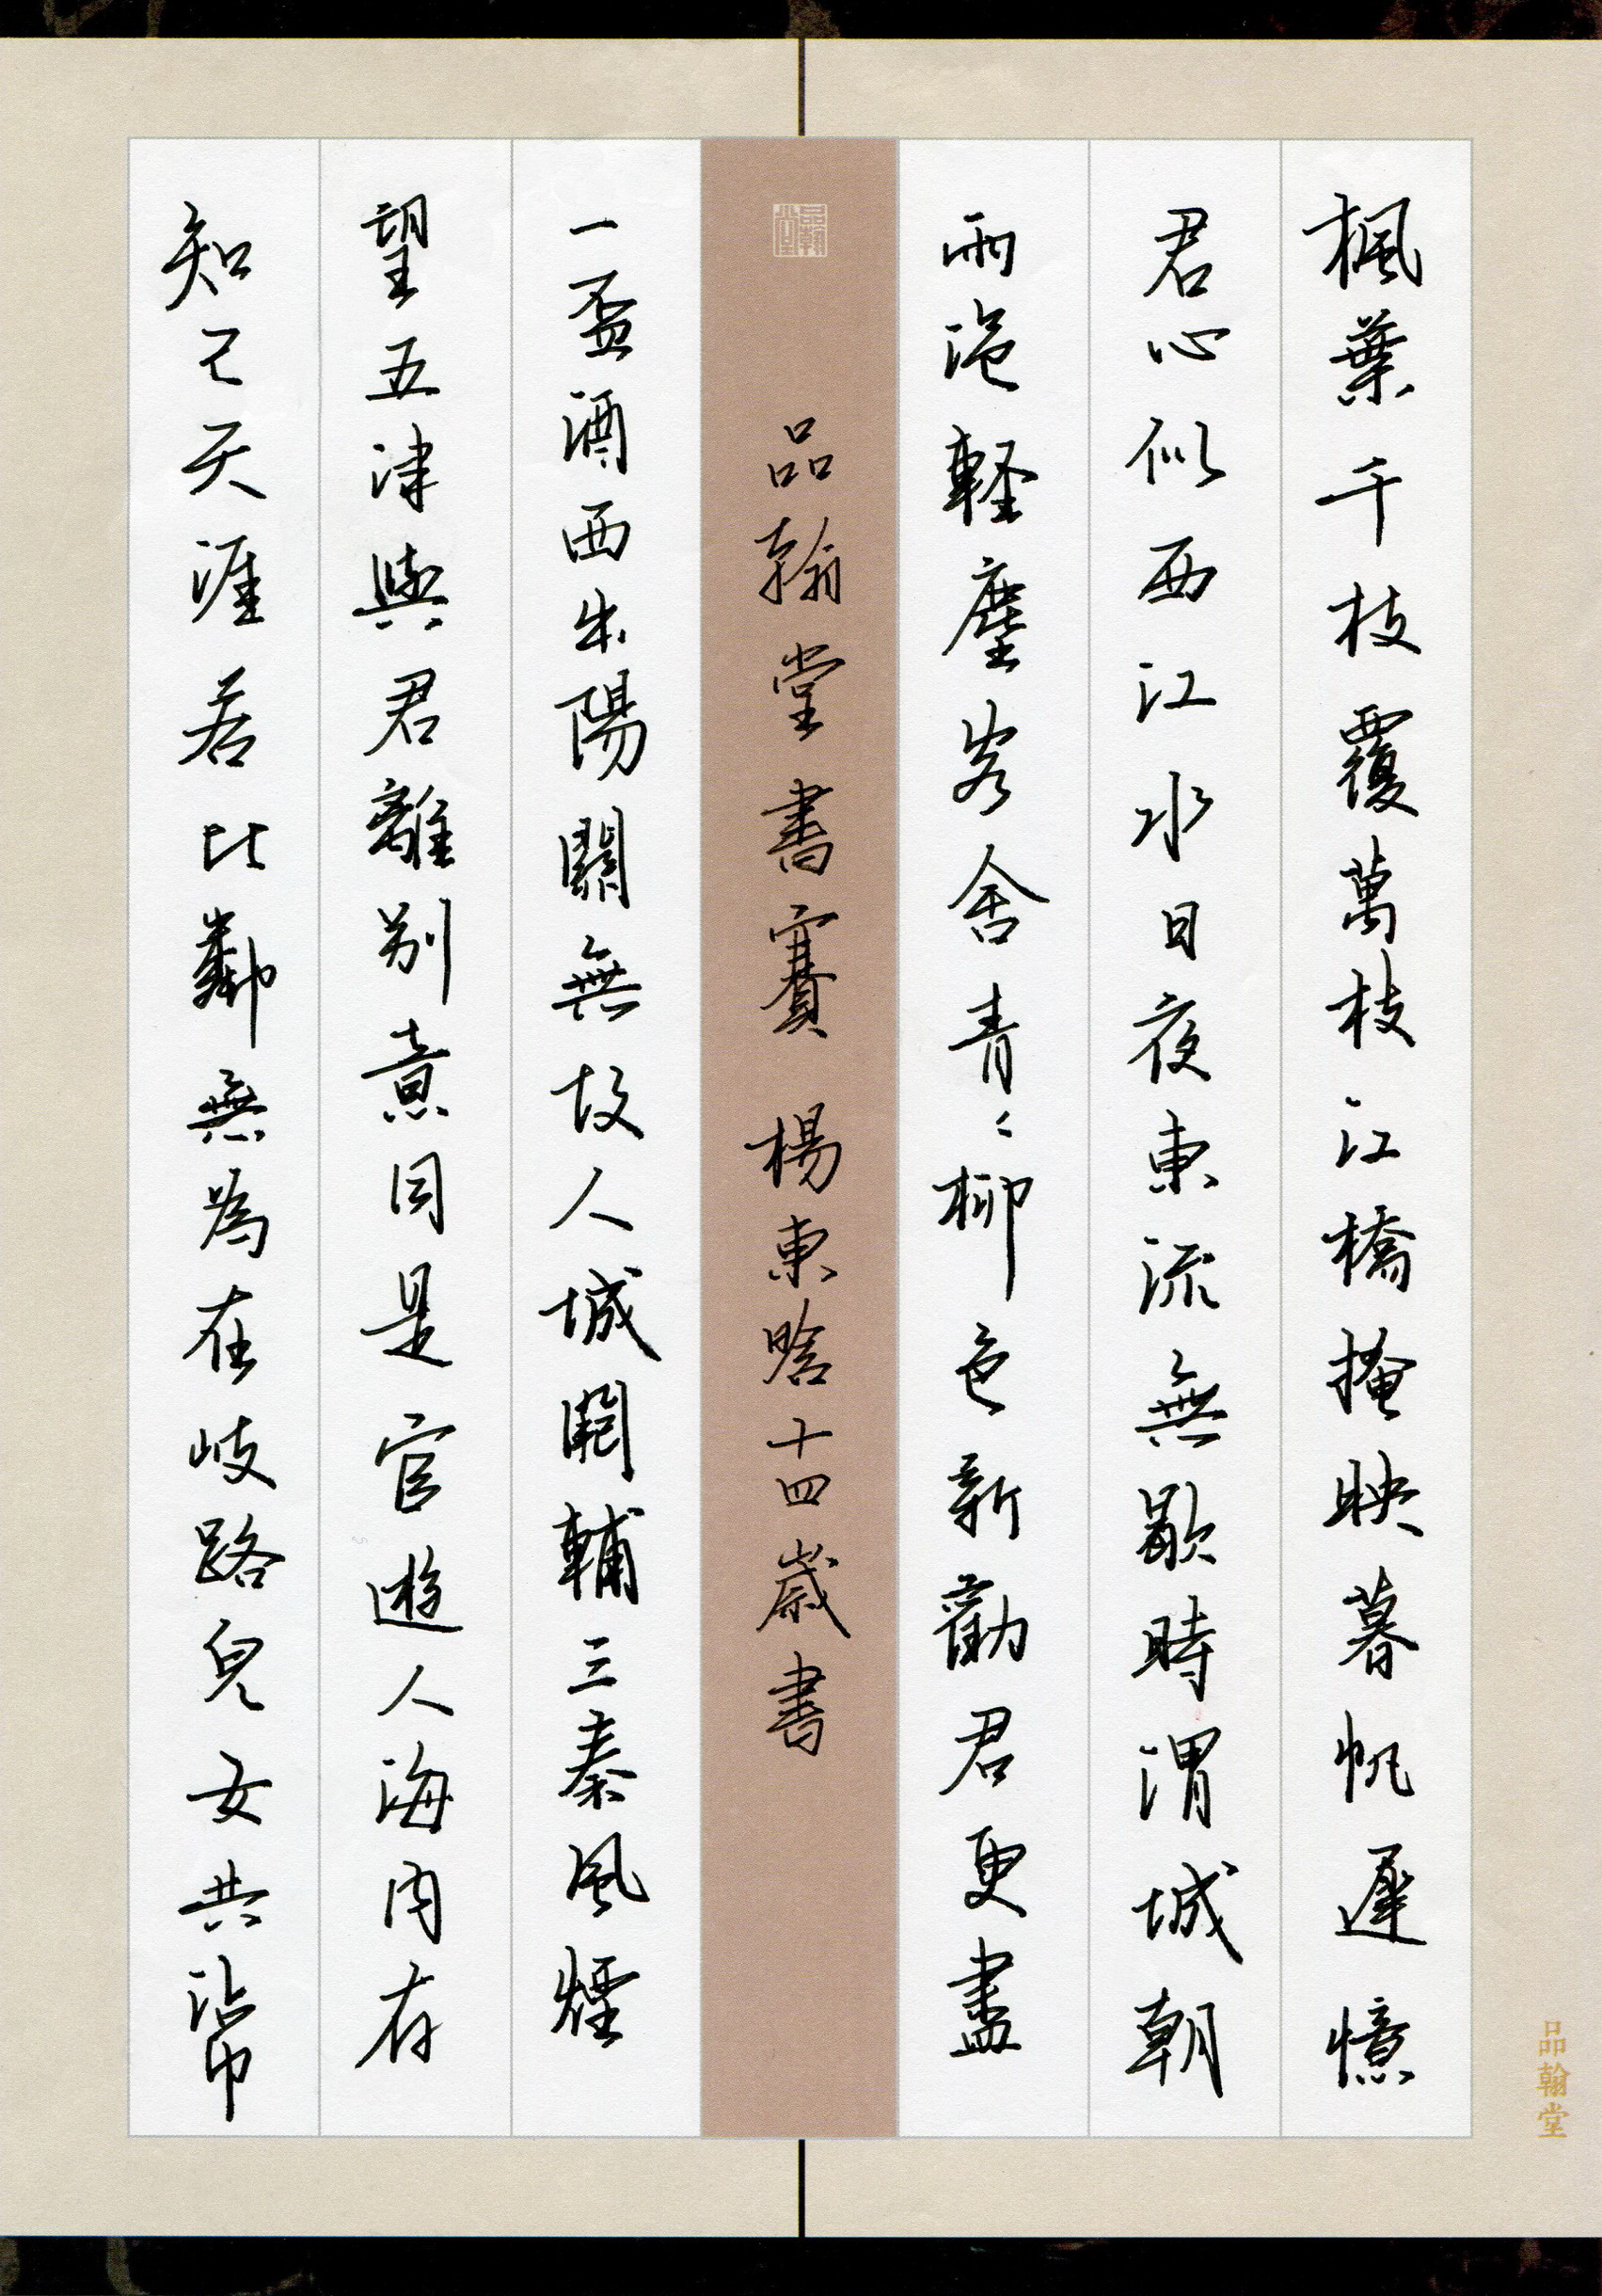 楓葉千枝覆萬枝江橋掩映暮帆遲憶
君心似西江水日夜東流無歇時渭城朝
雨浥軽塵客舍青〻柳色新勸君更盡
品翰堂
品翰堂書賽 楊東晗十四歲書
一盃酒西出陽關無故人城闕輔三秦風煙
望五津與君離別意同是宦遊人海內存
知己天涯若比鄰無為在岐路兒女共沾巾
品翰堂